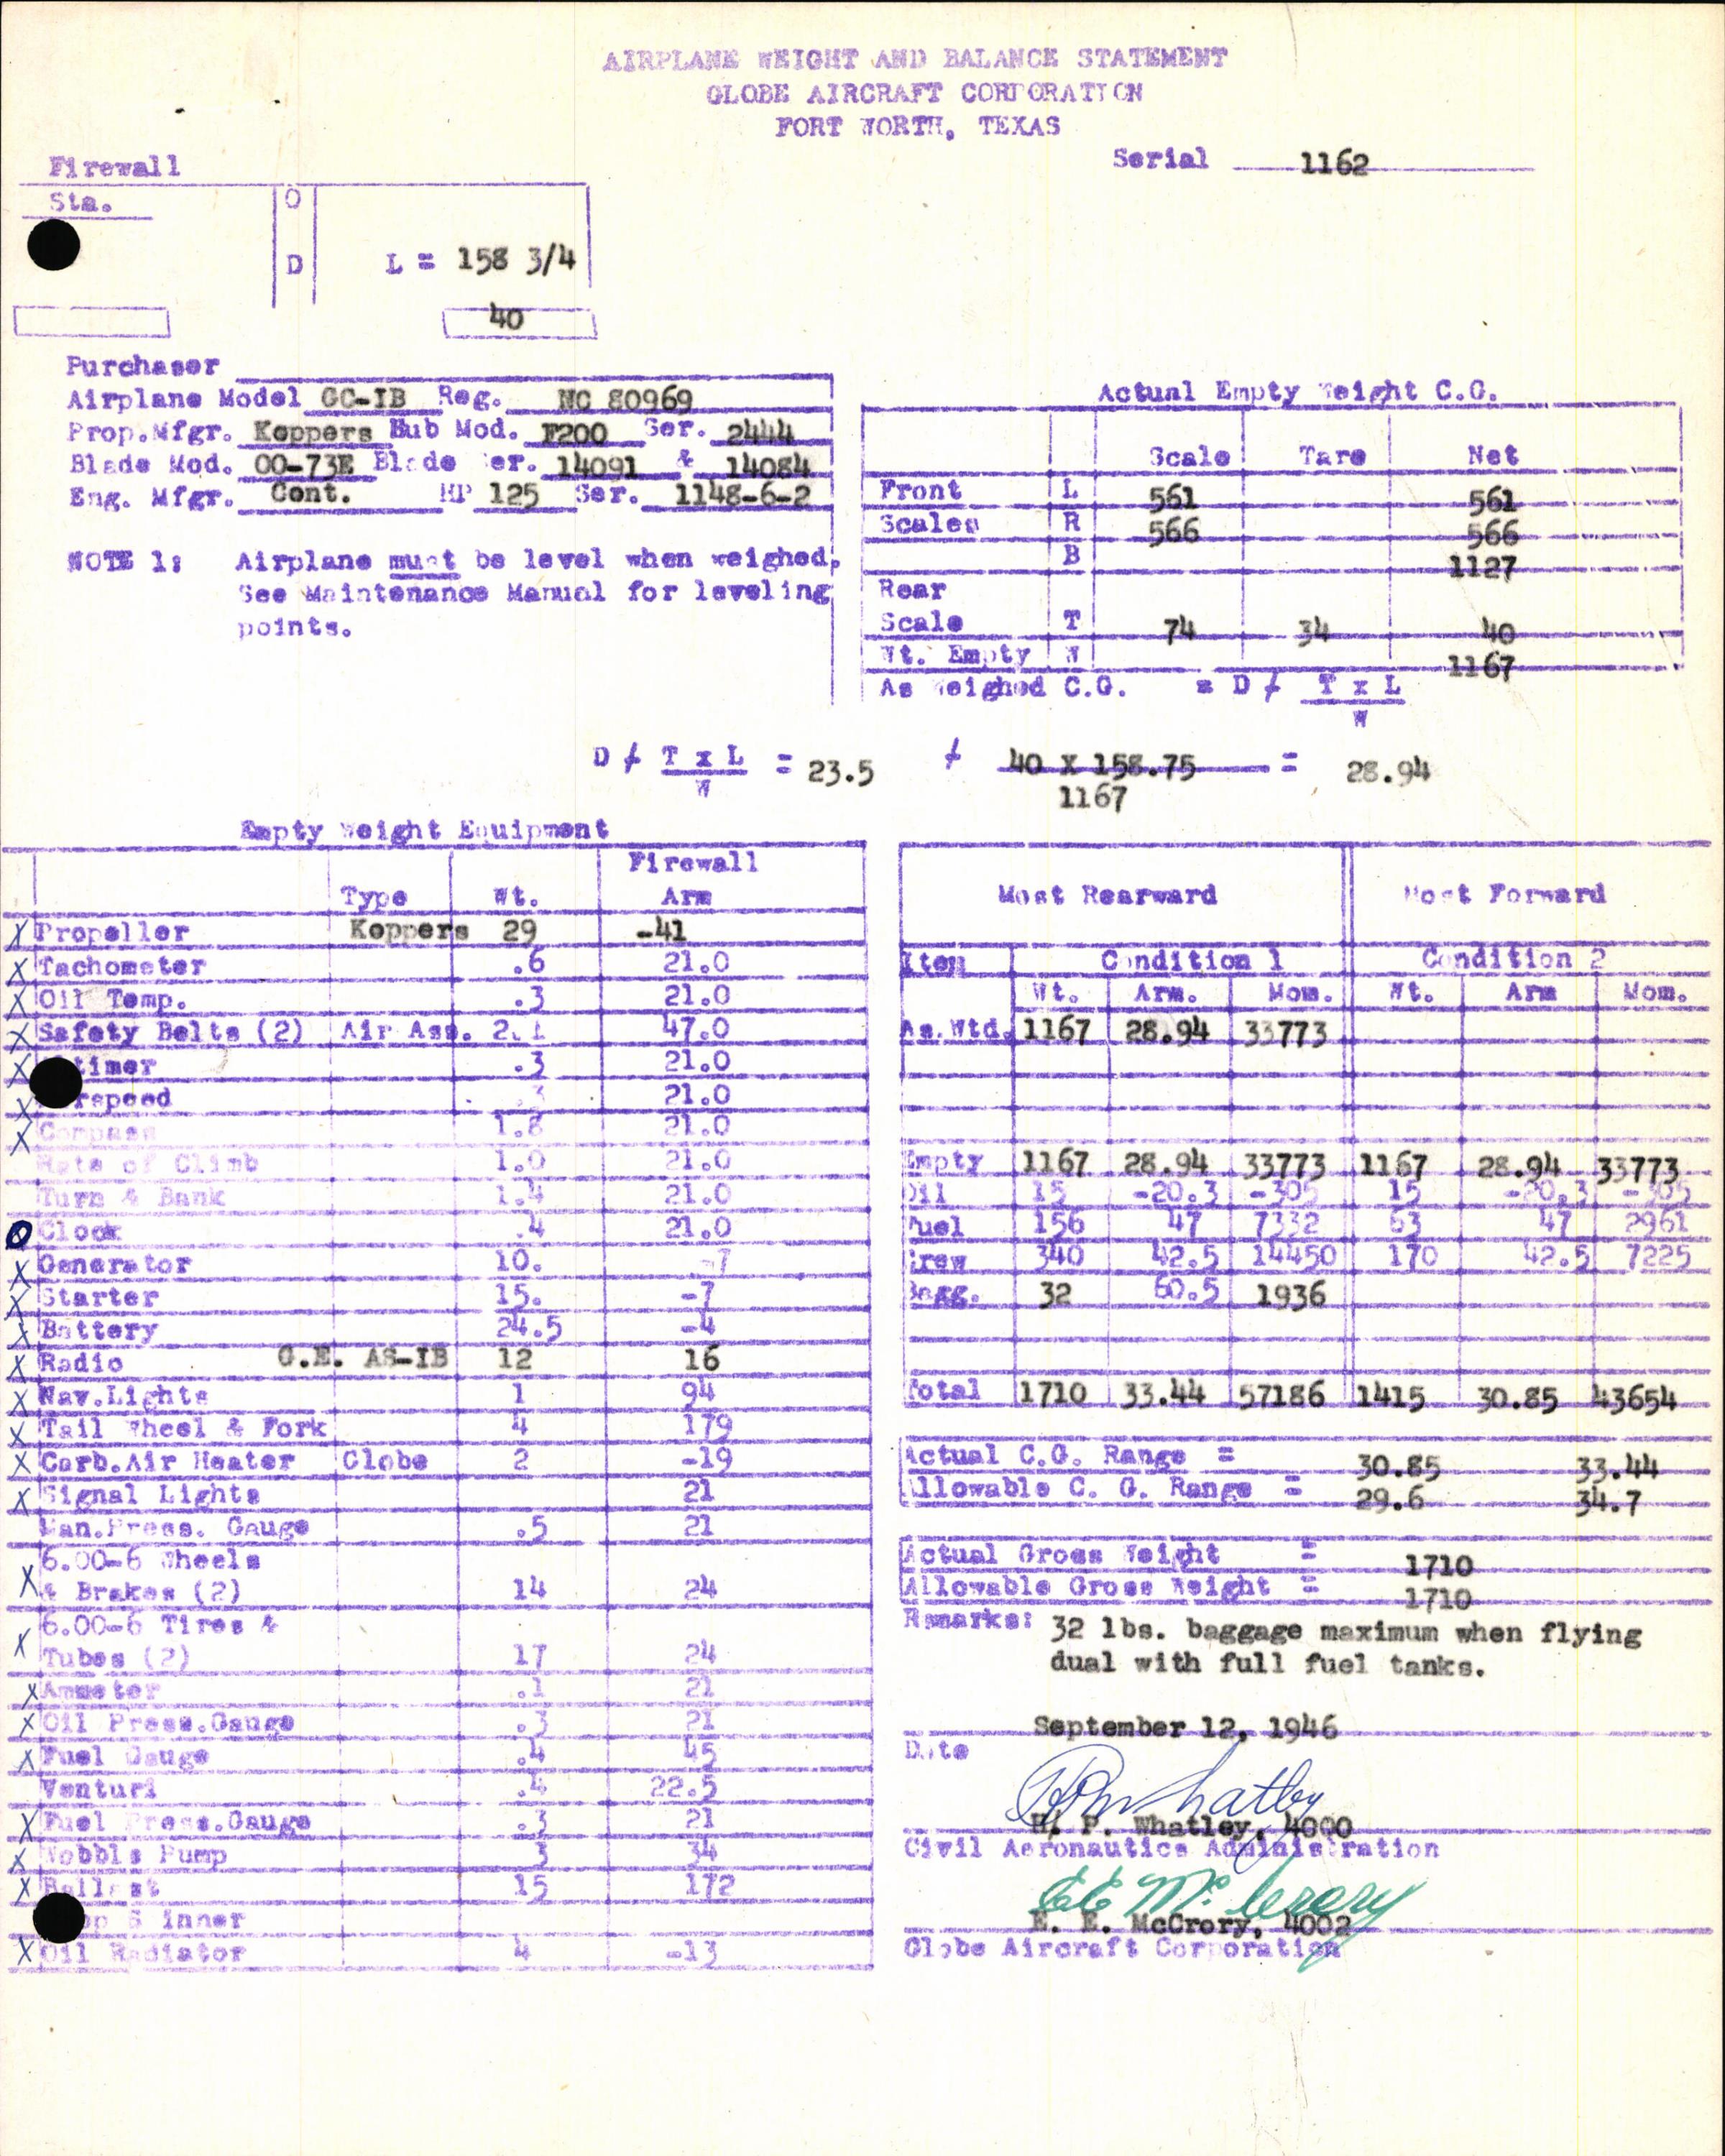 AIRPLANE WEIGHT AND BALANCE STATEMENT
GLOBE AIRCRAFT CORPORATION
FORT WORTH, TEXAS
Serial 1162
Firewall
Sta. O
D L = 158 3/4
40
Purchaser
Airplane Model GC-IB Reg. NC 80969
Prop.Mfgr. Koppers Hub Mod. F200 Ser. 2444
Blade Mod. 00-73E Blade Ser. 14091 & 14084
Eng. Mfgr. Cont. HP 125 Ser. 1148-6-2
NOTE 1: Airplane must be level when weighed,
See Maintenance Manual for leveling
points.
Actual Empty Weight C.G.
Scale Tare Net
Front L 561 561
Scales R 566 566
B 1127
Rear
Scale T 74 34 40
Wt. Empty W 1167
As Weighed C.G. = D ≠ T x L
W
D ≠ T x L = 23.5 ≠ 40 X 158.75 = 28.94
W 1167
Empty Weight Equipment
Firewall
Type Wt. Arm
X Propeller Koppers 29 -41
X Tachometer .6 21.0
X Oil Temp. .3 21.0
X Safety Belts (2) Air Ass. 2.1 47.0
X timer .3 21.0
X rspeed .3 21.0
X Compass 1.8 21.0
Rate of Climb 1.0 21.0
Turn & Bank 1.4 21.0
O Clock .4 21.0
X Generator 10. -7
X Starter 15. -7
X Battery 24.5 -4
X Radio G.E. AS-IB 12 16
X Nav.Lights 1 94
X Tail Wheel & Fork 4 179
X Carb.Air Heater Globe 2 -19
X Signal Lights 21
Man.Press. Gauge .5 21
6.00-6 Wheels
X & Brakes (2) 14 24
6.00-6 Tires &
X Tubes (2) 17 24
X Ammeter .1 21
X Oil Press.Gauge .3 21
X Fuel Gauge .4 45
Venturi .4 22.5
X Fuel Press.Gauge .3 21
X Wobble Pump 3 34
X Ballast 15 172
inner
X Oil Radiator 4 -13
Most Rearward Most Forward
Item Condition 1 Condition 2
Wt. Arm. Mom. Wt. Arm Mom.
As.Wtd. 1167 28.94 33773
Empty 1167 28.94 33773 1167 28.94 33773
Oil 15 -20.3 -305 15 -20.3 -305
Fuel 156 47 7332 63 47 2961
Crew 340 42.5 14450 170 42.5 7225
Bagg. 32 60.5 1936
Total 1710 33.44 57186 1415 30.85 43654
Actual C.G. Range = 30.85 33.44
Allowable C. G. Range = 29.6 34.7
Actual Gross Weight = 1710
Allowable Gross Weight = 1710
Remarks: 32 lbs. baggage maximum when flying
dual with full fuel tanks.
September 12, 1946
Date
H. P. Whatley, 4000
Civil Aeronautics Administration
EE McCrory
E. E. McCrory, 4002
Globe Aircraft Corporation